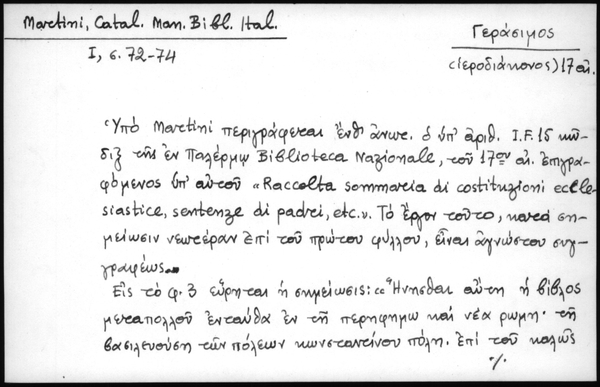 Martini, Catal. Man. Bibl. Ital.
Γεράσιμος
I, σ. 72-74
(ἱεροδιάκονος) 17 αἰ.
Ὑπὸ Martini περιγράφεται ἔνθ' ἀνωτ. ὁ ὑπ' ἀριθ. I.F.15 κῶ-
διξ τῆς ἐν Παλέρμῳ Biblioteca Nazionale, τοῦ 17ου αἰ. ἐπιγρα-
φόμενος ὑπ' αὐτοῦ «Raccolta sommaria di costituzioni eccle-
siastice, sentenze di padri, etc.». Τὸ ἔργον τοῦτο, κατὰ ση-
μείωσιν νεωτέραν ἐπὶ τοῦ πρώτου φύλλου, εἶναι ἀγνώστου συγ-
γραφέως.
Εἰς τὸ φ. 3 εὕρηται ἡ σημείωσις: «Ἠνησθαι αὕτη ἡ βίβλος
μεταπολλοῦ ἐνταῦθα ἐν τῇ περηφήμω καὶ νέα ρωμη· τῇ
βασιλευούση τῶν πόλεων κωνσταντίνου πόλη. ἐπὶ τοῦ καλῶς
·/.